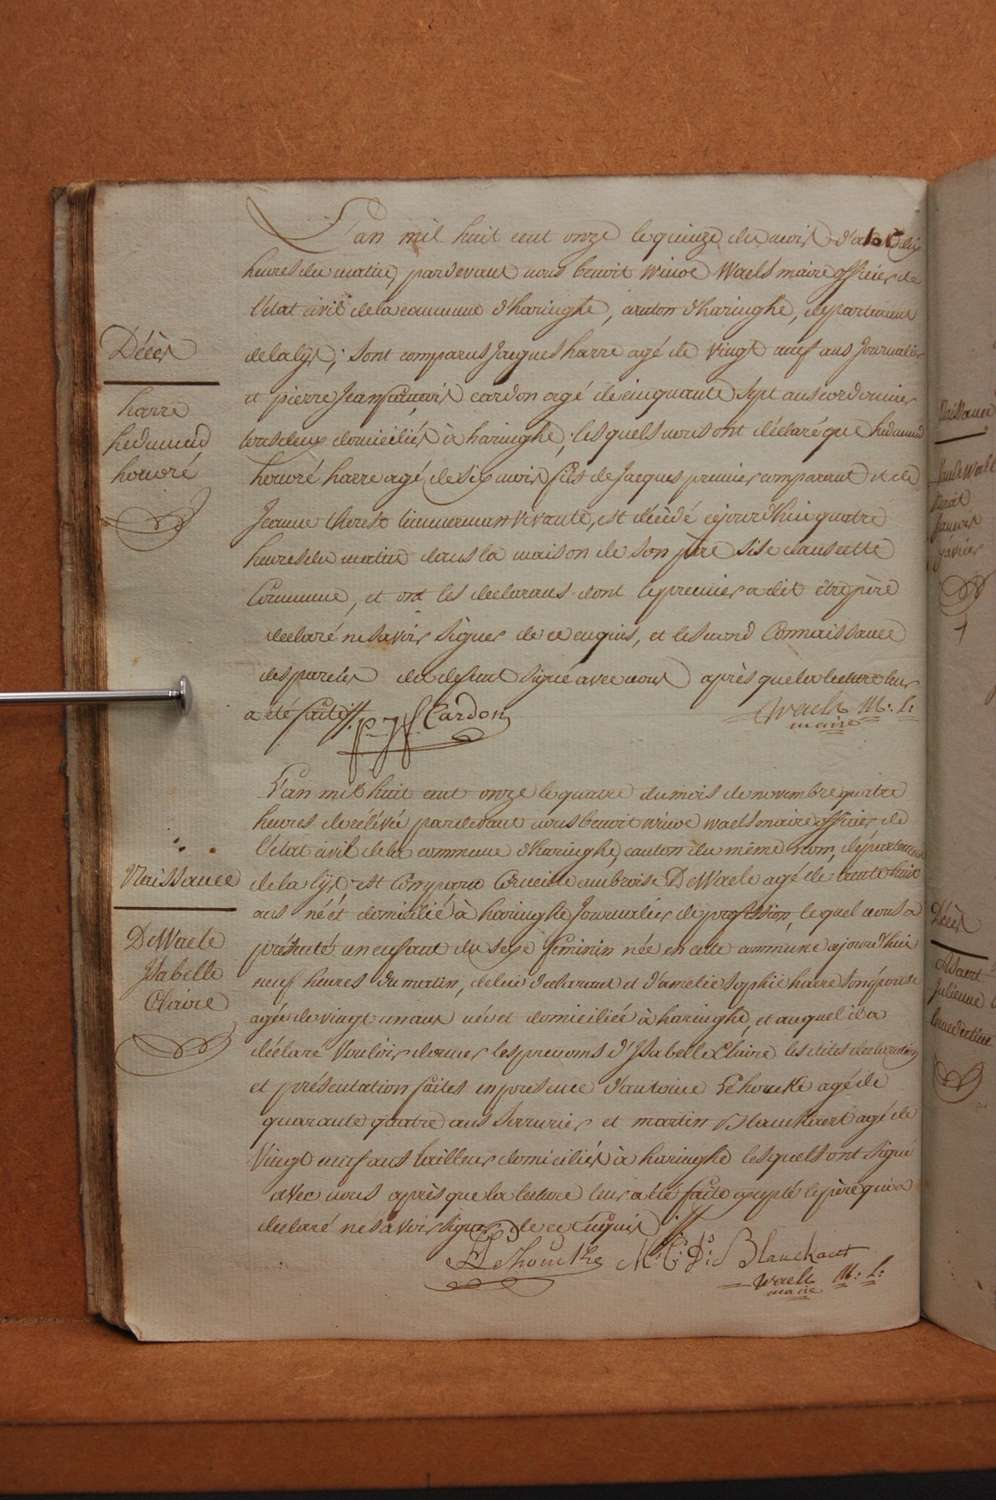 L'an mil huit cent onze le quinze du mois d'a dix
heures du matin, pardevant nous benoit Winoc Waels maire officier de
l'état civil de la commune d'haringhe, canton d'haringhe, département
de la lys; sont comparus Jacques harre agé de vingt neuf ans Journalier
et pierre Jean francois cardon agé de cinquante sept ans cordonnier
tous deux domiciliés à haringhe, lesquels nous ont déclaré que hedmund
honoré harre agé de six mois fils de Jacques premier comparant et de
Jeanne therese timmerman vivante, est décédé cejourd'hui quatre
heures du matin dans la maison de son père sise dans cette
Commune, et ont les declarans dont le premier a dit être père
declaré ne savoir signer de ce enquis, et le second Connaissance
des parties du defunt signé avec nous après que la lecture leur
a été faite
P. J. f. Cardon
Waels M: L:
maire
Décès
harre
hedmund
honoré
L'an mil huit cent onze le quatre du mois de novembre quatre
heures de relévé pardevant nous benoit winoc waels maire officier de
l'état civil de la commune d'haringhe canton du même nom, département
de la lys est Comparu Corneille ambroise DeWaele agé de trente huit
ans né et domicilié à haringhe Journalier de profession, lequel nous a
présenté un enfant du sexe feminin née en cette commune ajourd'hui
neuf heures du matin, de lui déclarant et d'amelie Sophie harre son épouse
agée de vingt un ans née et domiciliée à haringhe, et auquel il a
déclaré vouloir donner les prenoms d'Isabelle Claire les dites declaration
et présentation faites en presence d'antoine Lehoucke agé de
quarante quatre ans serrurier et martin Blanckaert agé de
Vingt neuf ans tailleur domiciliés à haringhe lesquels ont signé
avec nous après que la lecture leur a été faite excepté le père qui a
declaré ne savoir signer de ce enquis
Lehoucke M: C: D: Blanckaert
Waels M: L:
maire
Naissance
DeWaele
Isabelle
Claire
Naissance
Décès
Julienne